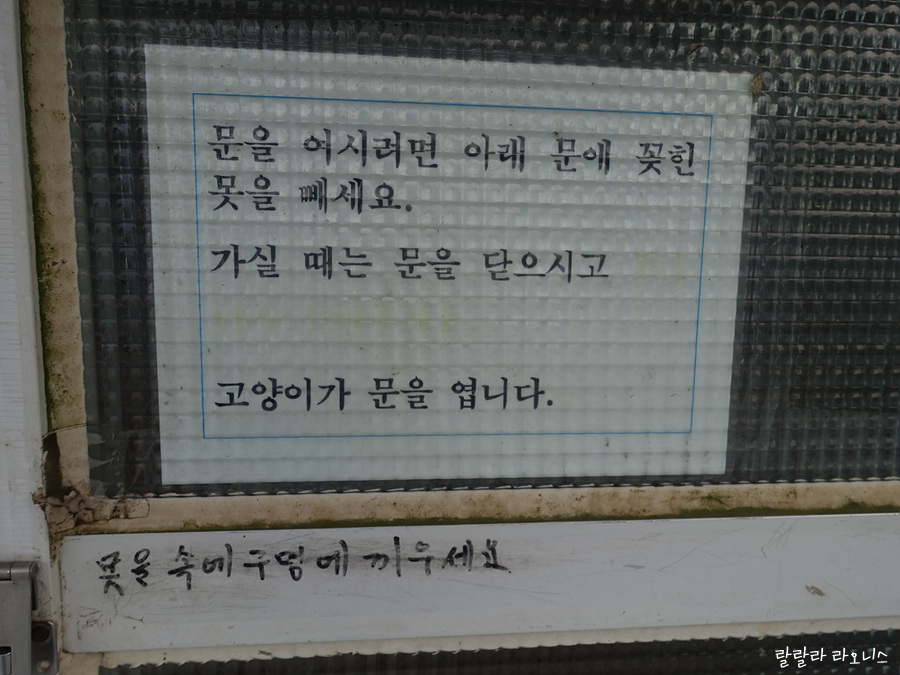 문을 여시려면 아래 문에 꽂힌
못을 빼세요.
가실 때는 문을 닫으시고
고양이가 문을 엽니다.
못을 속에 구멍에 끼우세요
랄랄라 라오니스